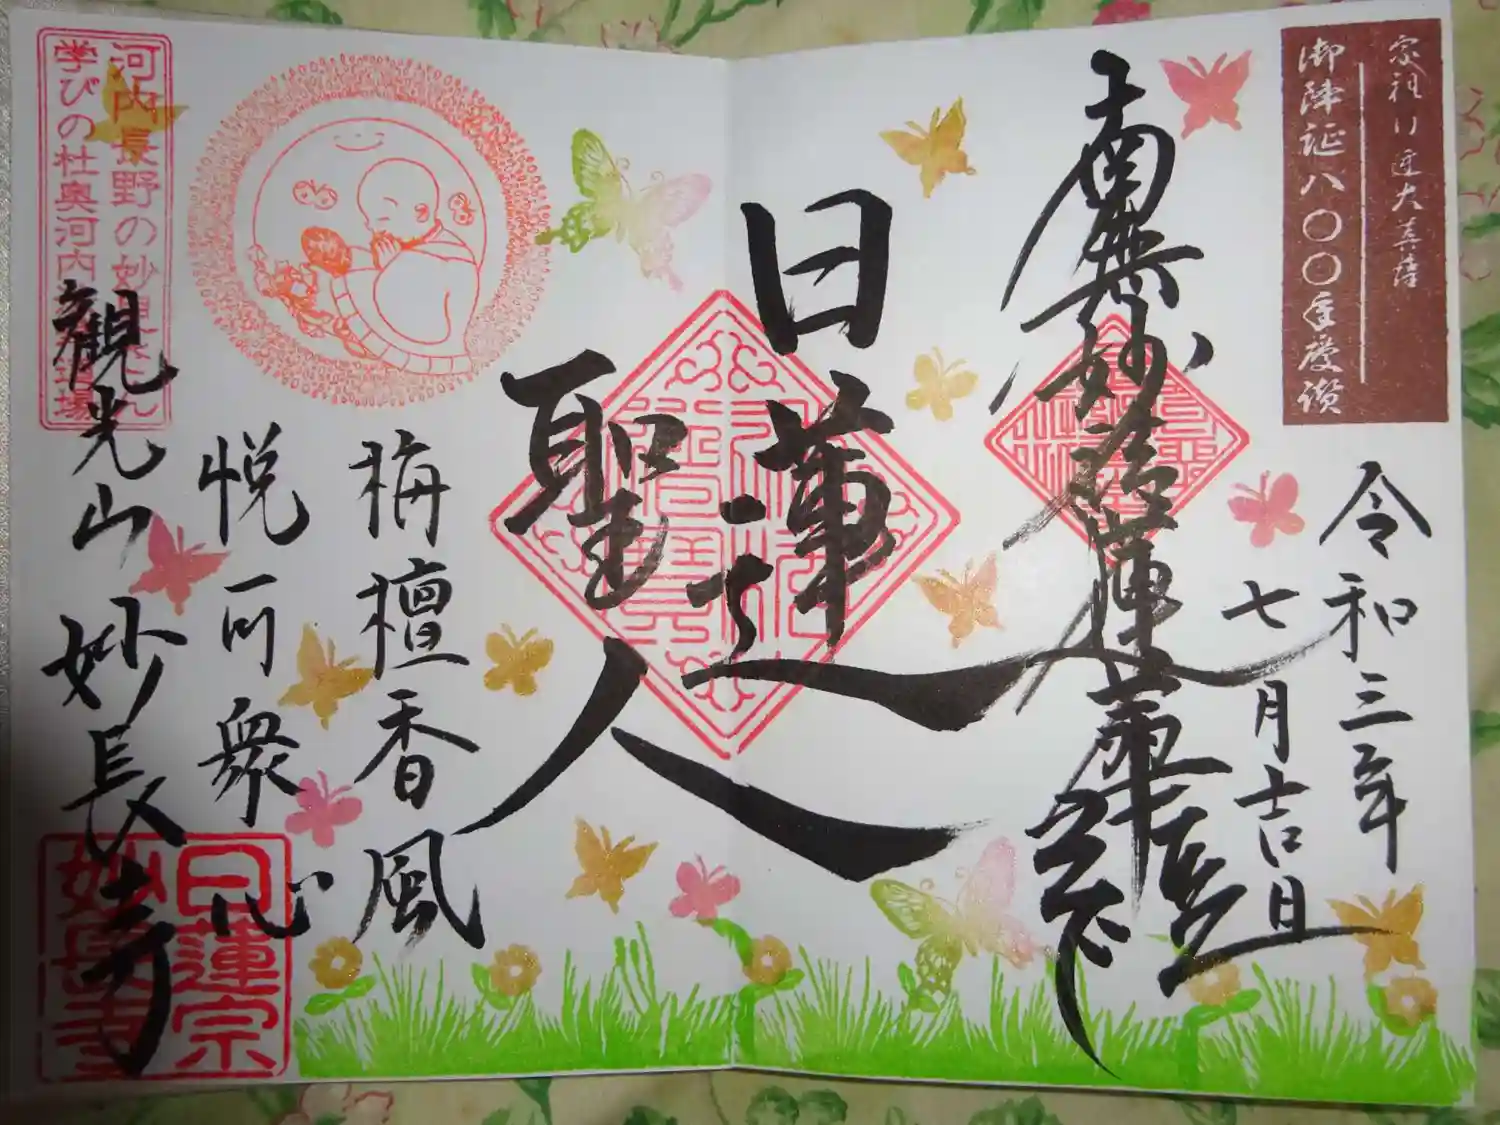 宗祖日蓮大菩薩
御降誕八〇〇年慶讃
令和三年
七月吉日
南無妙法蓮華経
日蓮
聖人
栴檀香風
悦可衆心
観光山 妙長寺
河内長野の妙見さん
学びの杜奥河内道場
日蓮宗
妙長寺